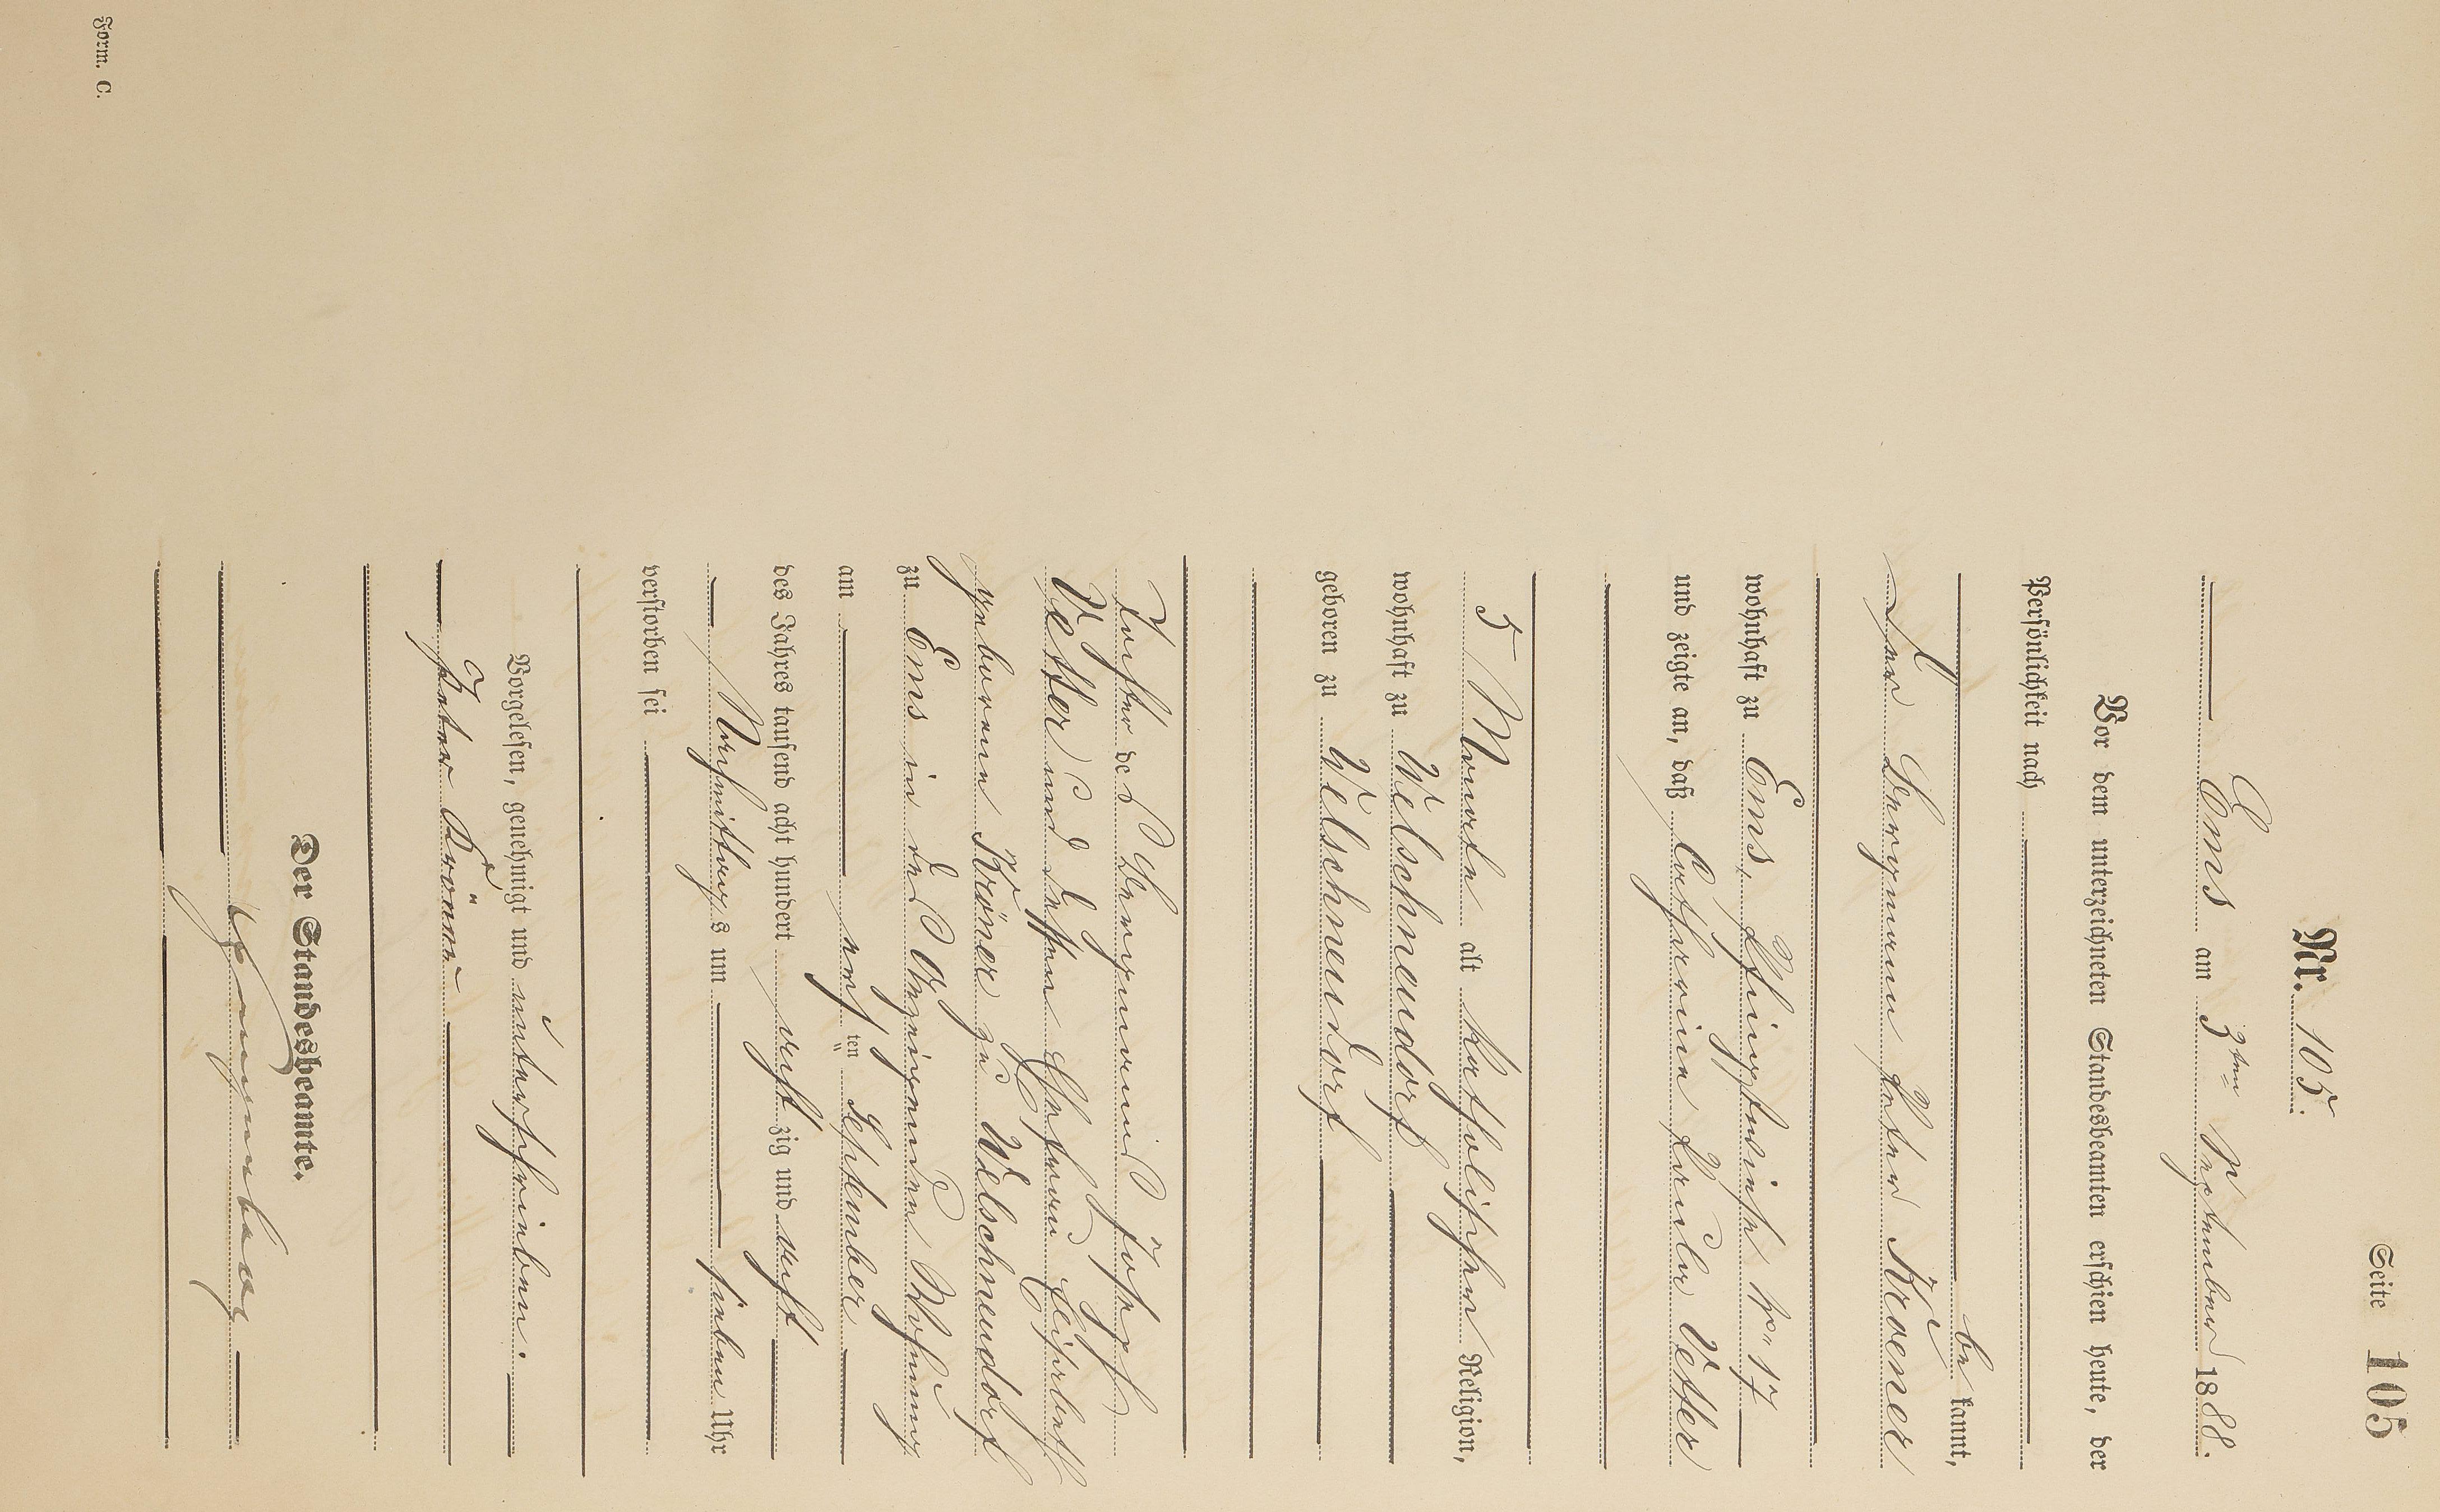 Seite 105
Nr. 105.
Ems am 3ten September 1888.
Vor dem unterzeichneten Standesbeamten erschien heute, der
Persönlichkeit nach
be kannt,
der Bergmann Peter Kröner
wohnhaft zu Ems, Pfingstwiese No 17
und zeigte an, daß Catharina Paula Vetter
5 Monate alt katholischer Religion,
wohnhaft zu Welschneudorf
geboren zu Welschneudorf
Tochter des Bergmanns Josef
Vetter und dessen Ehefrau Elisabeth
geborene Kröner zu Welschneudorf
zu Ems in des Anzeigenden Wohnung
am ten September
des Jahres tausend acht hundert acht zig und acht
Nachmittags um sieben Uhr
verstorben sei
Vorgelesen, genehmigt und unterschrieben.
Peter Kröner
Der Standesbeamte.
Form. C.